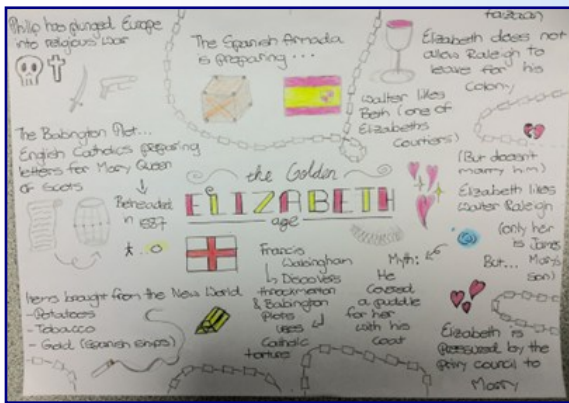 Philip has plunged Europe
into religious war
The Spanish Armada
is preparing...
Elizabeth does not
allow Raleigh to
leave for his
Colony
Walter likes
Beth (one of
Elizabeths
Courtiers)
The Babington Plot...
English Catholics preparing
letters for Mary Queen
of Scots
Beheaded
in 1587
the Golden
ELIZABETH
age
(But doesn't
marry him)
Elizabeth likes
Walter Raleigh
(only heir
is James
Mary's
son)
But...
Elizabeth is
Pressured by the
Privy council to
Marry
Francis
Walsingham
Discovers
Throckmorton
& Babington
Plots
uses
Catholic
torture
Myth:
He
Covered
a puddle
for her
with his
Coat
Items brought from the New World
- Potatoes
- Tobacco
- Gold (Spanish ships)